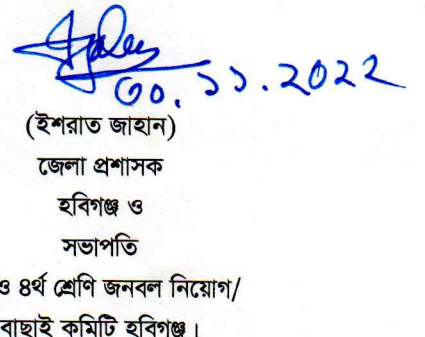 ৩০.১১.২০২২
(ইশরাত জাহান)
জেলা প্রশাসক
হবিগঞ্জ ও
সভাপতি
ও ৪র্থ শ্রেণি জনবল নিয়োগ/
বাছাই কমিটি হবিগঞ্জ।